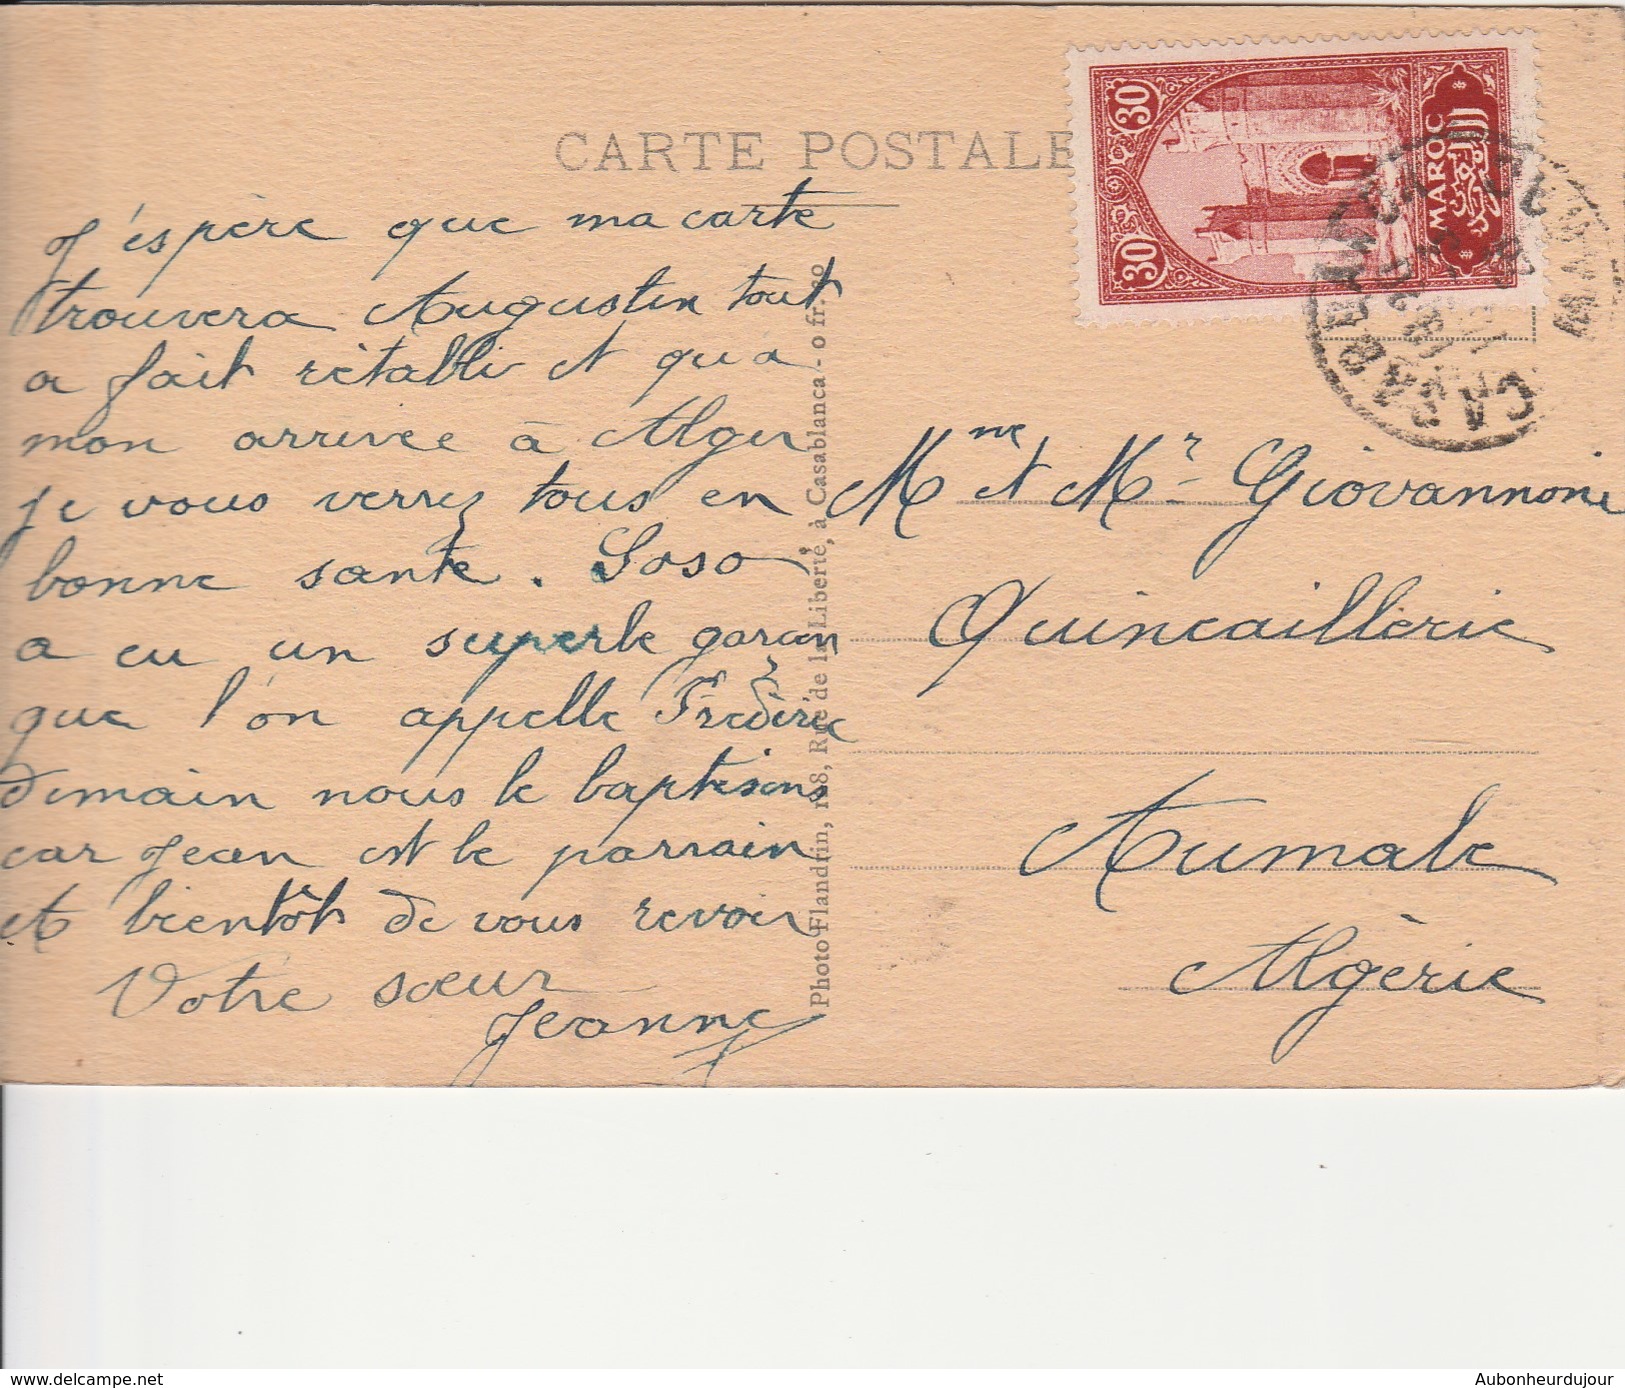 CARTE POSTALE
30
30
MAROC
المغرب
CASABLANCA
J'éspère que ma carte
trouvera Augustin tout
a fait rétabli et qu'a
mon arrivée à Alger
je vous verrez tous en
bonne sante. Soso
a eu un superbe garcon
que l'on appelle Frédéric
demain nous le baptisons
car Jean est le parrain
et bientôt de vous revoir
Votre sœur
Jeanne
Photo Flandrin, 128, Rue de la Liberté, à Casablanca - o fr.
Mme et Mr Giovannoni
Quincaillerie
Aumale
Algérie
delcampe.net
Aubonheurdujour